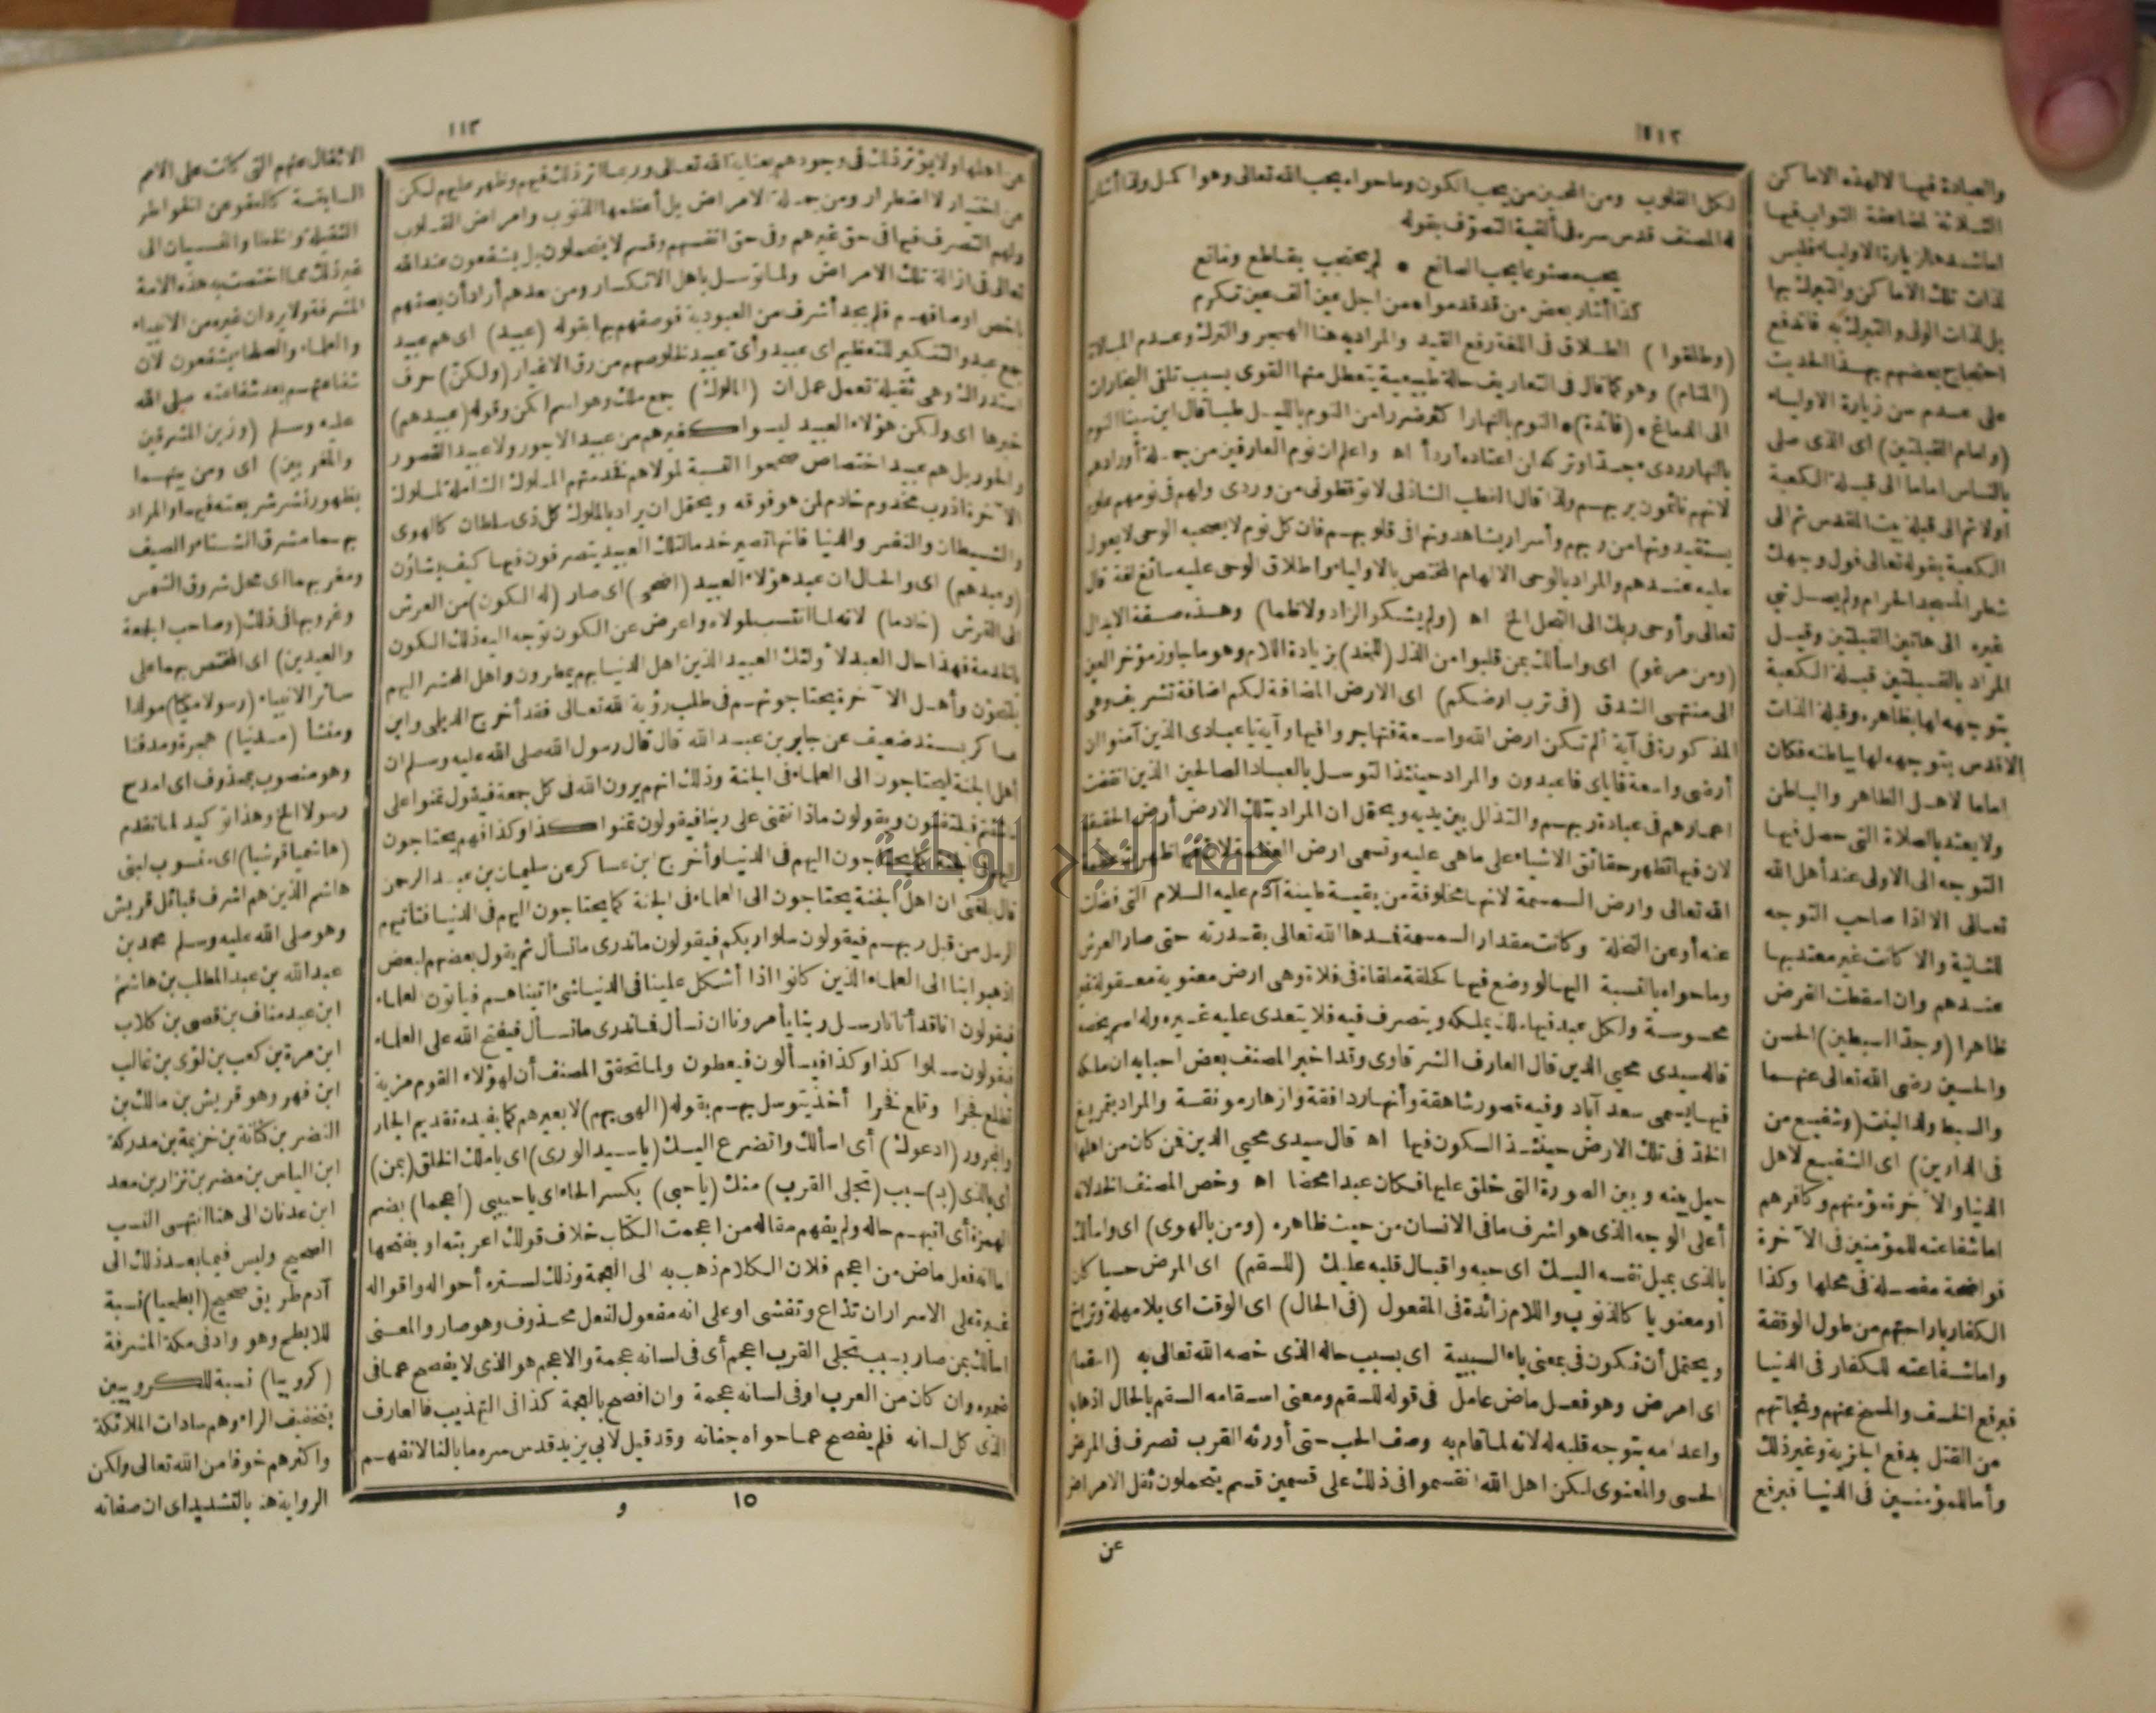 ١١٢
لكل القلوب ومن المحبين من يحب الكون وما حواه يحب الله تعالى وهو أكمل ولذا أشار
له المصنف قدس سره فى ألفية التصوف بقوله
يحب مصنوعا يحب الصانع • لم يحتجب بقاطع ومانع
كذا أشار بعض من قد قدموا • من اجل عين ألف عين تكرم
(وطلقوا) الطلاق فى اللغة رفع القيد والمراد به هنا الهجر والترك وعدم المبالاة
(المنام) وهو كما قال فى التعاريف حالة طبيعية يتعطل منها القوى بسبب ترقى البخارات
الى الدماغ • (فائدة) • النوم بالنهار اكثر ضررا من النوم بالليل طبا قال ابن سينا النوم
بالنهار ردىء جدا وتركه لمن اعتاده أردأ اه واعلم ان نوم العارفين من جملة أورادهم
لانهم نائمون بربهم ولذا قال القطب الشاذلى لا توقظونى من وردى ولهم فى نومهم علوم
يستفيدونها من ربهم وأسرار يشاهدونها فى قلوبهم فان كل نوم لا يصحبه الوحى لا يعول
عليه عندهم والمراد بالوحى الالهام المختص بالاولياء واطلاق الوحى عليه سائغ لغة قال
تعالى وأوحى ربك الى النحل الخ اه (ولم يشكو الزاد ولا ظما) وهذه صفة الابدال
(ومن مرغو) اى واسألك بمن قلبوا من الذل (للخد) بزيادة اللام وهو ما جاوز مؤخر العين
الى منتهى الشدق (فى ترب ارضكم) اى الارض المضافة لكم اضافة تشريف وهى
المذكورة فى آية ألم تكن ارض الله واسعة فتهاجروا فيها وآية يا عبادى الذين آمنوا ان
أرضى واسعة فاياى فاعبدون والمراد حينئذ التوسل بالعباد الصالحين الذين انقضت
اعمارهم فى عبادة ربهم والتذلل بين يديه ويحتمل ان المراد بتلك الارض أرض الحقيقة
لان فيها تظهر حقائق الاشياء على ما هى عليه وتسمى ارض العظمة
الله تعالى وارض السمسمة لانها مخلوقة من بقية طينة آدم عليه السلام التى فضلت
عنه أو عن النخلة وكانت مقدار السمسمة فمدها الله تعالى بقدرته حتى صار العرش
وما حواه بالنسبة اليها لو وضع فيها كحلقة ملقاة فى فلاة وهى ارض معنوية معقولة غير
محسوسة ولكل عبد فيها ملك يملكه ويتصرف فيه فلا يتعدى عليه غيره وله اسم يخصه
قاله سيدى محيى الدين قال العارف الشرقاوى وقد اخبر المصنف بعض احبابه ان ملكه
فيها يسمى سعد آباد وفيه قصور شاهقة وأنهار دافقة وازهار مونقة والمراد بتمريغ
الخد فى تلك الارض حينئذ السكون فيها اه قال سيدى محيى الدين فمن كان من اهلها
حيل بينه وبين الصورة التى خلق عليها فكان عبدا محضا اه وخص المصنف الخد لانه
أعلى الوجه الذى هو اشرف ما فى الانسان من حيث ظاهره (ومن بالهوى) اى واسألك
بالذى يميل نفسه اليك اى حبه واقبال قلبه عليك (للسقم) اى المرض حسيا كان
او معنويا كالذنوب واللام زائدة فى المفعول (فى الحال) اى الوقت اى بلا مهلة وتراخ
ويحتمل أن تكون فى بمعنى باء السببية اى بسبب حاله الذى خصه الله تعالى به (اسقما)
اى امرض وهو فعل ماض عامل فى قوله للسقم ومعنى اسقامه السقم بالحال اذهابه
واعدامه بتوجه قلبه له لانه لما قام به وصف الحب حتى أورثه القرب تصرف فى المرض
الحسى والمعنوى لكن اهل الله انقسموا فى ذلك على قسمين قسم يتحملون ثقل الامراض
عن
والعبادة فيها لا لهذه الاماكن
الثلاثة لمضاعفة الثواب فيها
اما شدها لزيارة الاولياء فليس
لذات تلك الاماكن والتبرك بها
بل لذات الولى والتبرك به فاندفع
احتجاج بعضهم بهذا الحديث
على عدم سن زيارة الاولياء
(وامام القبلتين) اى الذى صلى
بالناس اماما الى قبلة الكعبة
اولا ثم الى قبلة بيت المقدس ثم الى
الكعبة بقوله تعالى فول وجهك
شطر المسجد الحرام ولم يصل نبى
غيره الى هاتين القبلتين وقيل
المراد بالقبلتين قبلة الكعبة
يتوجه لها بظاهره وقبلة الذات
الاقدس يتوجه لها بباطنه فكان
اماما لاهل الظاهر والباطن
ولا يعتد بالصلاة التى حصل فيها
التوجه الى الاولى عند أهل الله
تعالى الا اذا صاحب التوجه
للثانية والا كانت غير معتد بها
عندهم وان اسقطت الفرض
ظاهرا (وجد السبطين) الحسن
والحسين رضى الله تعالى عنهما
والسبط ولد البنت (وشفيع من
فى الدارين) اى الشفيع لاهل
الدنيا والآخرة مؤمنهم وكافرهم
اما شفاعته للمؤمنين فى الآخرة
فواضحة مفصلة فى محلها وكذا
الكفار باراحتهم من طول الوقفة
واما شفاعته للكفار فى الدنيا
فبرفع الخسف والمسخ عنهم ونجاتهم
من القتل بدفع الجزية وغير ذلك
وأما للمؤمنين فى الدنيا فبرفع
١١٣
عن اهلها ولا يؤثر ذلك فى وجودهم بعناية الله تعالى وربما اثر ذلك فيهم وظهر عليهم لكن
عن اختيار لا اضطرار ومن جملة الامراض بل أعظمها الذنوب وامراض القلوب
ولهم التصرف فيها فى حق غيرهم وفى حق انفسهم وقسم لا يتحملون بل يشفعون عند الله
تعالى فى ازالة تلك الامراض ولما توسل باهل الانكسار ومن بعدهم أراد أن يصفهم
باخص اوصافهم فلم يجد أشرف من العبودية فوصفهم بها بقوله (عبيد) اى هم عبيد
جمع عبد والتنكير للتعظيم اى عبيد وأى عبيد لخلوصهم من رق الاغيار (ولكن) حرف
استدراك وهى ثقيلة تعمل عمل ان (الملوك) جمع ملك وهو اسم لكن وقوله (عبيدهم)
خبرها اى ولكن هؤلاء العبيد ليسوا كغيرهم من عبيد الاجور ولا عبيد القصور
والحور بل هم عبيد اختصاص صححوا النسبة لمولاهم فخدمتهم الملوك الشاملة لملوك
الآخرة اذ رب مخدوم خادم لمن هو فوقه ويحتمل ان يراد بالملوك كل ذى سلطان كالهوى
والشيطان والنفس والدنيا فانها تصير خدما لتلك العبيد يتصرفون فيها كيف يشاؤن
(وعبدهم) اى والحال ان عبد هؤلاء العبيد (اضحى) اى صار (له الكون) من العرش
الى الفرش (خادما) لانه لما انتسب لمولاه واعرض عن الكون توجه اليه ذلك الكون
بالخدمة فهذا حال العبد لاولئك العبيد الذين اهل الدنيا بهم يمطرون واهل المحشر اليهم
يلتجؤن وأهل الآخرة يحتاجونهم فى طلب رؤية الله تعالى فقد أخرج الديلمى وابن
عساكر بسند ضعيف عن جابر بن عبد الله قال قال رسول الله صلى الله عليه وسلم ان
أهل الجنة ليحتاجون الى العلماء فى الجنة وذلك انهم يرون الله فى كل جمعة فيقول تمنوا على
ما شئتم فيلتفتون ويقولون ماذا نتمنى على ربنا فيقولون تمنوا كذا وكذا فهم يحتاجون
اليهم فى الجنة كما يحتاجون اليهم فى الدنيا وأخرج ابن عساكر عن سليمان بن عبد الرحمن
قال بلغنى ان اهل الجنة يحتاجون الى العلماء فى الجنة كما يحتاجون اليهم فى الدنيا فتأتيهم
الرسل من قبل ربهم فيقولون سلوا ربكم فيقولون ما ندرى ما نسأل ثم يقول بعضهم لبعض
اذهبوا بنا الى العلماء الذين كانوا اذا أشكل علينا فى الدنيا شئ اتيناهم فيأتون العلماء
فيقولون انا قد أتانا رسل ربنا يأمروننا ان نسأل فما ندرى ما نسأل فيفتح الله على العلماء
فيقولون سلوا كذا وكذا فيسألون فيعطون ولما تحقق المصنف أن لهؤلاء القوم مزية
تطلع فجرا وتلمع فخرا أخذ يتوسل بهم بقوله (الهى بهم) لا بغيرهم كما يفيده تقديم الجار
والمجرور (ادعوك) أى اسألك واتضرع اليك (يا سيد الورى) اى يا ملك الخلق (بمن)
اى بالذى (بـ) سبب (تجلى القرب) منك (يا حبى) بكسر الحاء اى يا حبيبى (أعجما) بضم
الهمزة أى انبهم حاله ولم يفهم مقاله من اعجمت الكتاب خلاف قولك اعربته او بفتحها
اما انه فعل ماض من اعجم فلان الكلام ذهب به الى العجمة وذلك لستره أحواله واقواله
غيرة على الاسرار ان تذاع وتفشى او على انه مفعول لفعل محذوف وهو صار والمعنى
اسألك بمن صار بسبب تجلى القرب اعجم أى فى لسانه عجمة والاعجم هو الذى لا يفصح عما فى
ضميره وان كان من العرب او فى لسانه عجمة وان افصح بالعجمة كذا فى التهذيب فالعارف
الذى كل لسانه فلم يفصح عما حواه جنانه وقد قيل لابى يزيد قدس سره ما بالنا لا نفهم
١٥ و
الاثقال عنهم التى كانت على الامم
السابقة كالعفو عن الخواطر
الثقيلة والخطا والنسيان الى
غير ذلك مما اختصت به هذه الامة
المشرفة ولا يرد ان غيره من الانبياء
والعلماء والصلحاء يشفعون لان
شفاعتهم بعد شفاعته صلى الله
عليه وسلم (وزين المشرقين
والمغربين) اى ومن بينهما
بظهور نشر شريعته فيهما والمراد
بهما مشرق الشتاء والصيف
ومغربهما اى محل شروق الشمس
وغروبها فى ذلك (وصاحب الجمعة
والعيدين) اى المختص بهما على
سائر الانبياء (رسولا مكيا) مولدا
ومنشأ (مدنيا) هجرة ومدفنا
وهو منصوب بمحذوف اى امدح
رسولا الخ وهذا توكيد لما تقدم
(هاشميا قرشيا) اى منسوب لبنى
هاشم الذين هم اشرف قبائل قريش
وهو صلى الله عليه وسلم محمد بن
عبد الله بن عبد المطلب بن هاشم
ابن عبد مناف بن قصى بن كلاب
ابن مرة بن كعب بن لؤى بن غالب
ابن فهر وهو قريش بن مالك بن
النضر بن كنانة بن خزيمة بن مدركة
ابن الياس بن مضر بن نزار بن معد
ابن عدنان الى هنا انتهى النسب
الصحيح وليس فيما بعد ذلك الى
آدم طريق صحيح (ابطحيا) نسبة
للابطح وهو واد فى مكة المشرفة
(كروبيا) نسبة للكروبيين
بتخفيف الراء وهم سادات الملائكة
واكثرهم خوفا من الله تعالى ولكن
الرواية هنا بالتشديد اى ان صفاته
جامعة النجاح الوطنية